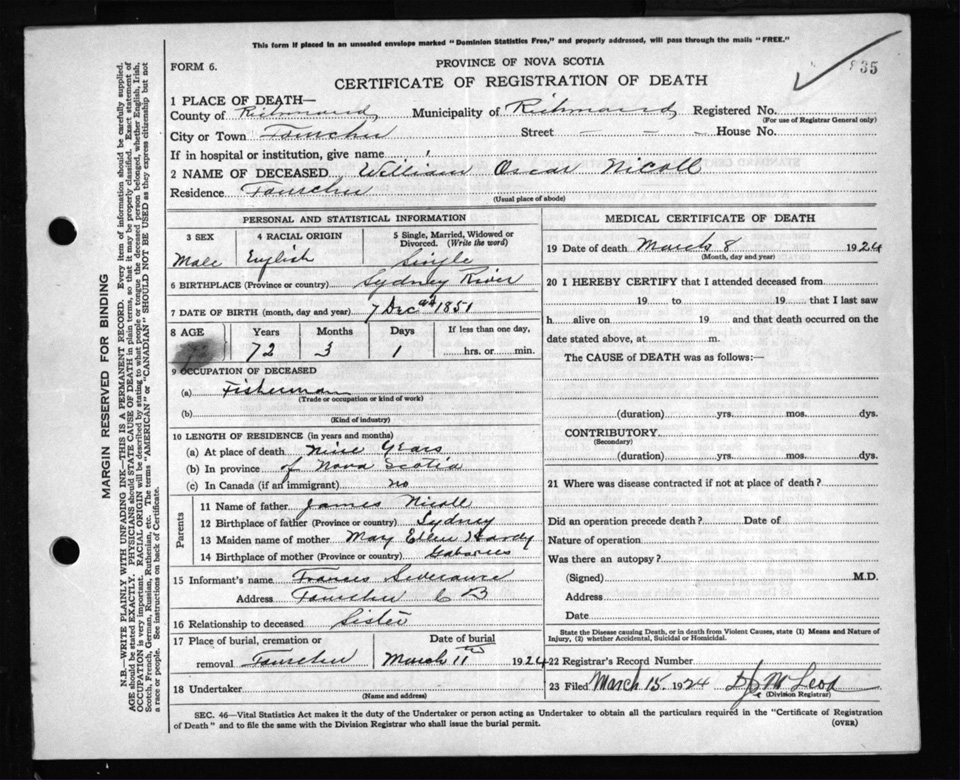 This form if placed in an unsealed envelope marked "Dominion Statistics Free," and properly addressed, will pass through the mails "FREE."
FORM 6.
PROVINCE OF NOVA SCOTIA
835
CERTIFICATE OF REGISTRATION OF DEATH
1 PLACE OF DEATH—
County of Richmond Municipality of Richmond Registered No.
(For use of Registrar General only)
City or Town Fourchu Street — — — House No.
If in hospital or institution, give name
2 NAME OF DECEASED William Oscar Nicoll
Residence Fourchu
(Usual place of abode)
PERSONAL AND STATISTICAL INFORMATION
3 SEX 4 RACIAL ORIGIN 5 Single, Married, Widowed or Divorced. (Write the word)
Male English Single
6 BIRTHPLACE (Province or country) Sydney River
7 DATE OF BIRTH (month, day and year) 7 Dec 1851
8 AGE Years Months Days If less than one day,
72 3 1 hrs. or min.
9 OCCUPATION OF DECEASED
(a) Fisherman
(Trade or occupation or kind of work)
(b)
(Kind of industry)
10 LENGTH OF RESIDENCE (in years and months)
(a) At place of death Nine Years
(b) In province of Nova Scotia
(c) In Canada (if an immigrant) no
Parents
11 Name of father James Nicoll
12 Birthplace of father (Province or country) Sydney
13 Maiden name of mother Mary Ellen Hardy
14 Birthplace of mother (Province or country) Gabarus
15 Informant's name Frances Severance
Address Fourchu C B
16 Relationship to deceased Sister
17 Place of burial, cremation or Date of burial
removal Fourchu March 11th 1924
18 Undertaker
(Name and address)
MEDICAL CERTIFICATE OF DEATH
19 Date of death March 8 1924
(Month, day and year)
20 I HEREBY CERTIFY that I attended deceased from
19 to 19 that I last saw
h alive on 19 and that death occurred on the
date stated above, at m.
The CAUSE of DEATH was as follows:—
(duration) yrs. mos. dys.
CONTRIBUTORY
(Secondary)
(duration) yrs. mos. dys.
21 Where was disease contracted if not at place of death?
Did an operation precede death? Date of
Nature of operation
Was there an autopsy?
(Signed) M.D.
Address
Date
State the Disease causing Death, or in death from Violent Causes, state (1) Means and Nature of
Injury, (2) whether Accidental, Suicidal or Homicidal.
22 Registrar's Record Number
23 Filed March 15. 1924 McLeod
(Division Registrar)
SEC. 46—Vital Statistics Act makes it the duty of the Undertaker or person acting as Undertaker to obtain all the particulars required in the "Certificate of Registration
of Death" and to file the same with the Division Registrar who shall issue the burial permit.
(OVER)
MARGIN RESERVED FOR BINDING
N.B.—WRITE PLAINLY WITH UNFADING INK—THIS IS A PERMANENT RECORD. Every item of information should be carefully supplied.
AGE should be stated EXACTLY. PHYSICIANS should STATE CAUSE OF DEATH in plain terms, so that it may be properly classified. Exact statement of
OCCUPATION is very important. RACIAL ORIGIN will be described by stating to what people or tongue the deceased person belonged, whether English, Irish,
Scotch, French, German, Russian, Ruthenian, etc. The terms "AMERICAN" or "CANADIAN" SHOULD NOT BE USED as they express citizenship but not
a race or people. See instructions on back of Certificate.